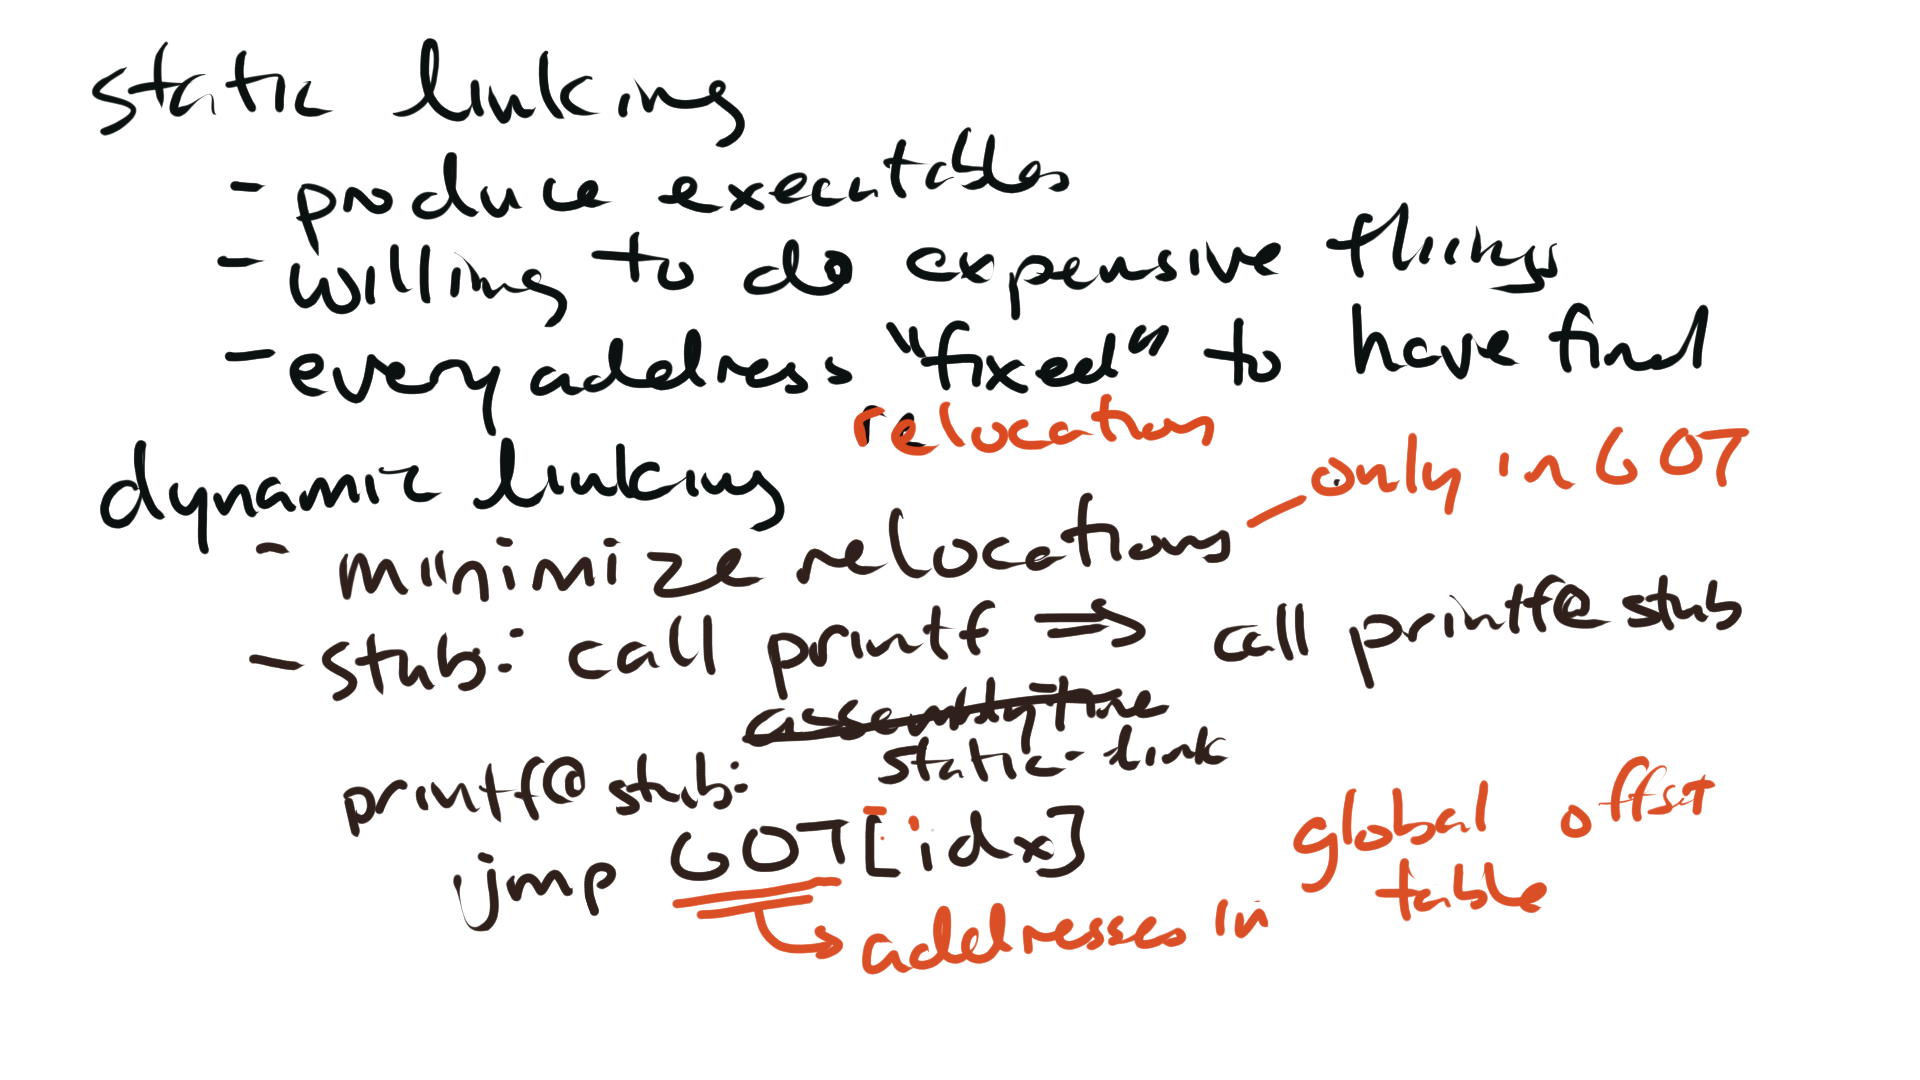 static linking
- produce executables
- willing to do expensive things
- every address "fixed" to have final
relocations
dynamic linking
- minimize relocations - only in GOT
- stub: call printf ⇒ call printf@stub
assembly time
static-link
printf@stub:
jmp GOT[idx]
addresses in global offset table